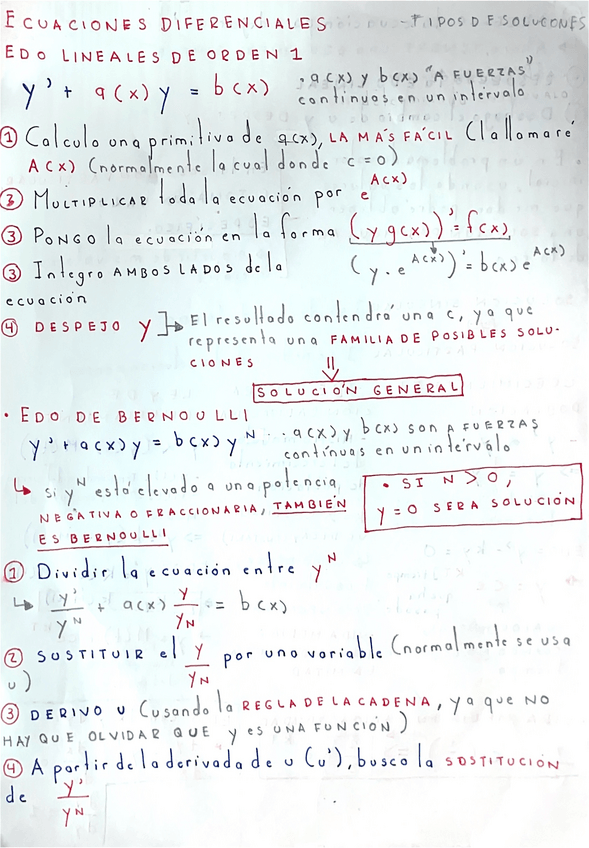 ECUACIONES DIFERENCIALES - TIPOS DE SOLUCONES
EDO LINEALES DE ORDEN 1
y' + a(x) y = b(x) · a(x) y b(x) "A FUERZAS"
continuos en un intérvalo
① Calculo una primitiva de a(x), LA MÁS FÁCIL (la llamaré
A(x) (normalmente la cual donde c = 0)
③ MULTIPLICAR toda la ecuación por e^A(x)
③ PONGO la ecuación en la forma (y g(x))' = f(x)
③ Integro AMBOS LADOS de la (y · e^A(x))' = b(x) e^A(x)
ecuación
④ DESPEJO y ]→ El resultado contendrá una c, ya que
representa una FAMILIA DE POSIBLES SOLU-
CIONES ⇓
SOLUCIÓN GENERAL
· EDO DE BERNOULLI
y' + a(x) y = b(x) y^N · · a(x) y b(x) son A FUERZAS
contínuas en un intérvalo
↳ si y^N está elevado a una potencia
NEGATIVA O FRACCIONARIA, TAMBIÉN
ES BERNOULLI
• SI N > 0,
y = 0 SERA SOLUCIÓN
① Dividir la ecuación entre y^N
↳ y'/y^N + a(x) y/y^N = b(x)
② SUSTITUIR el y/y^N por una variable (normalmente se usa
u)
③ DERIVO u (usando la REGLA DE LA CADENA, ya que NO
HAY QUE OLVIDAR QUE y ES UNA FUNCIÓN)
④ A partir de la derivada de u (u'), busco la SOSTITUCIÓN
de y'/y^N